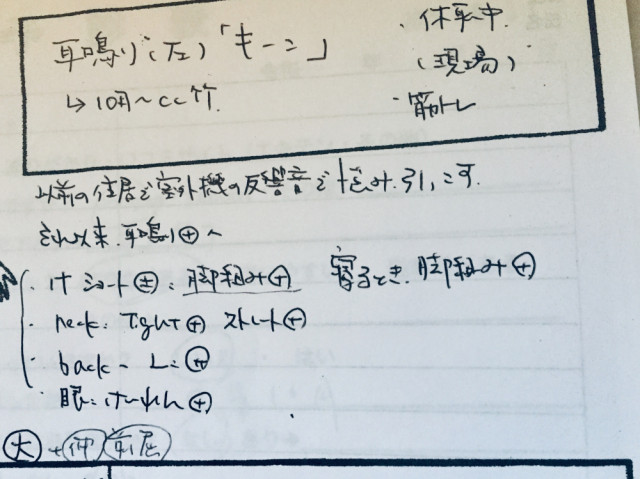 耳鳴り(左)「キーン」
・休職中
(現場)
↳ 10月~
・筋トレ
以前の住居で室外機の反響音で
それ以来、耳鳴り⊕へ
・けショート⊕:脚組み⊕
寝るとき、脚組み⊕
・neck:Tight⊕ ストレート⊕
・back - L:⊕
・眼:けいれん⊕
大+伸 前屈